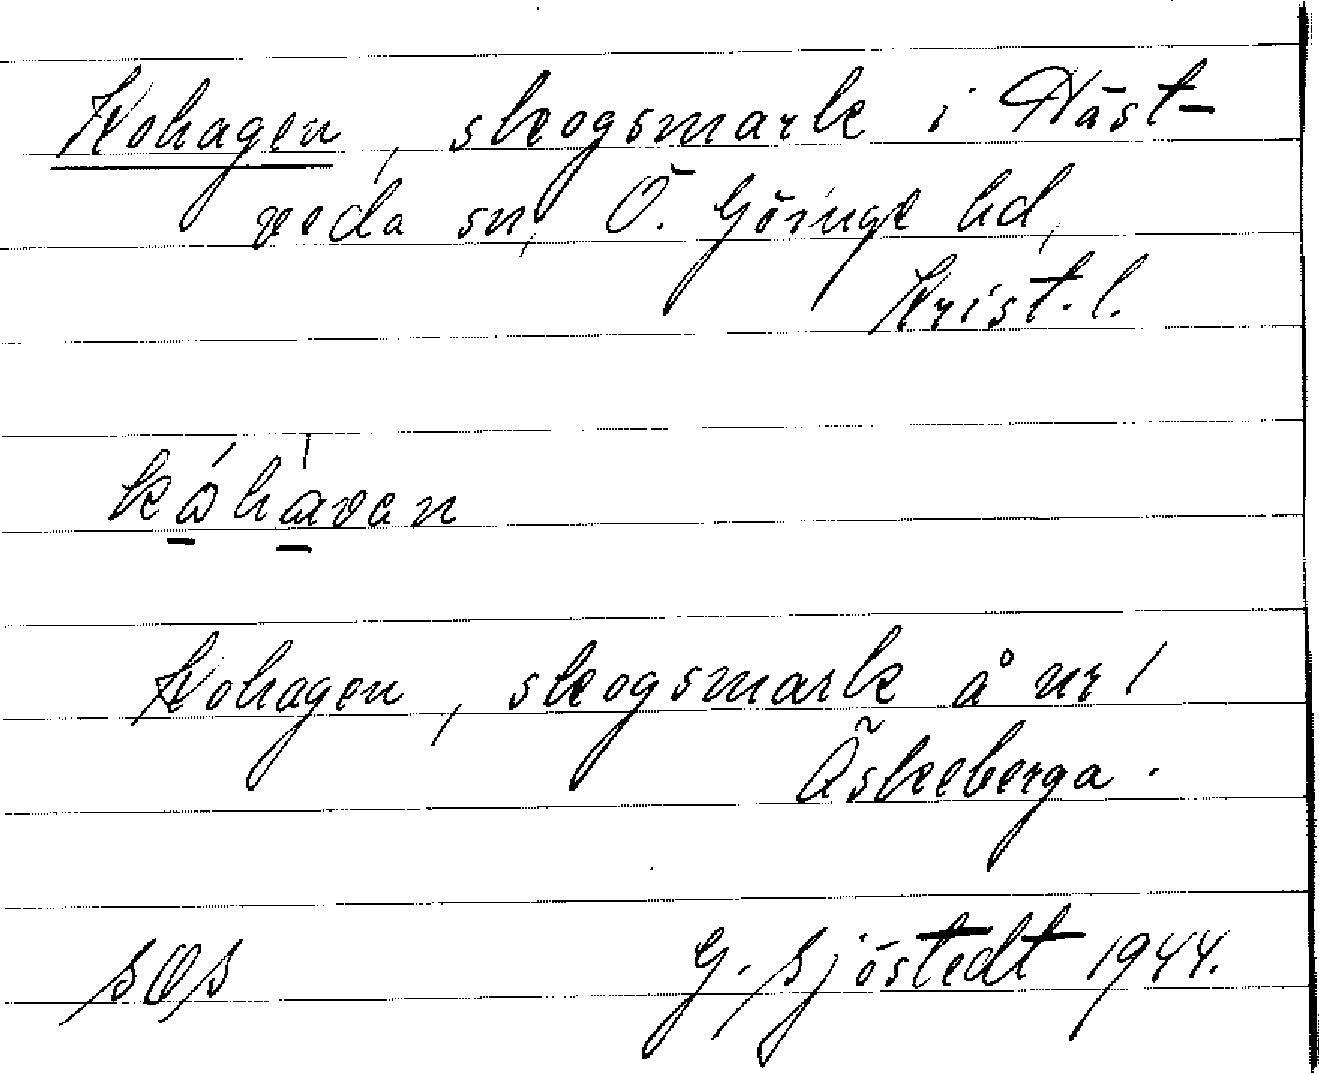 Kohagen, skogsmark i Häst-
veda sn, Ö. Göinge hd,
Krist. l.
kóhàvan
Kohagen, skogsmark å nr 1
Äskeberga.
SOS G. Sjöstedt 1944.